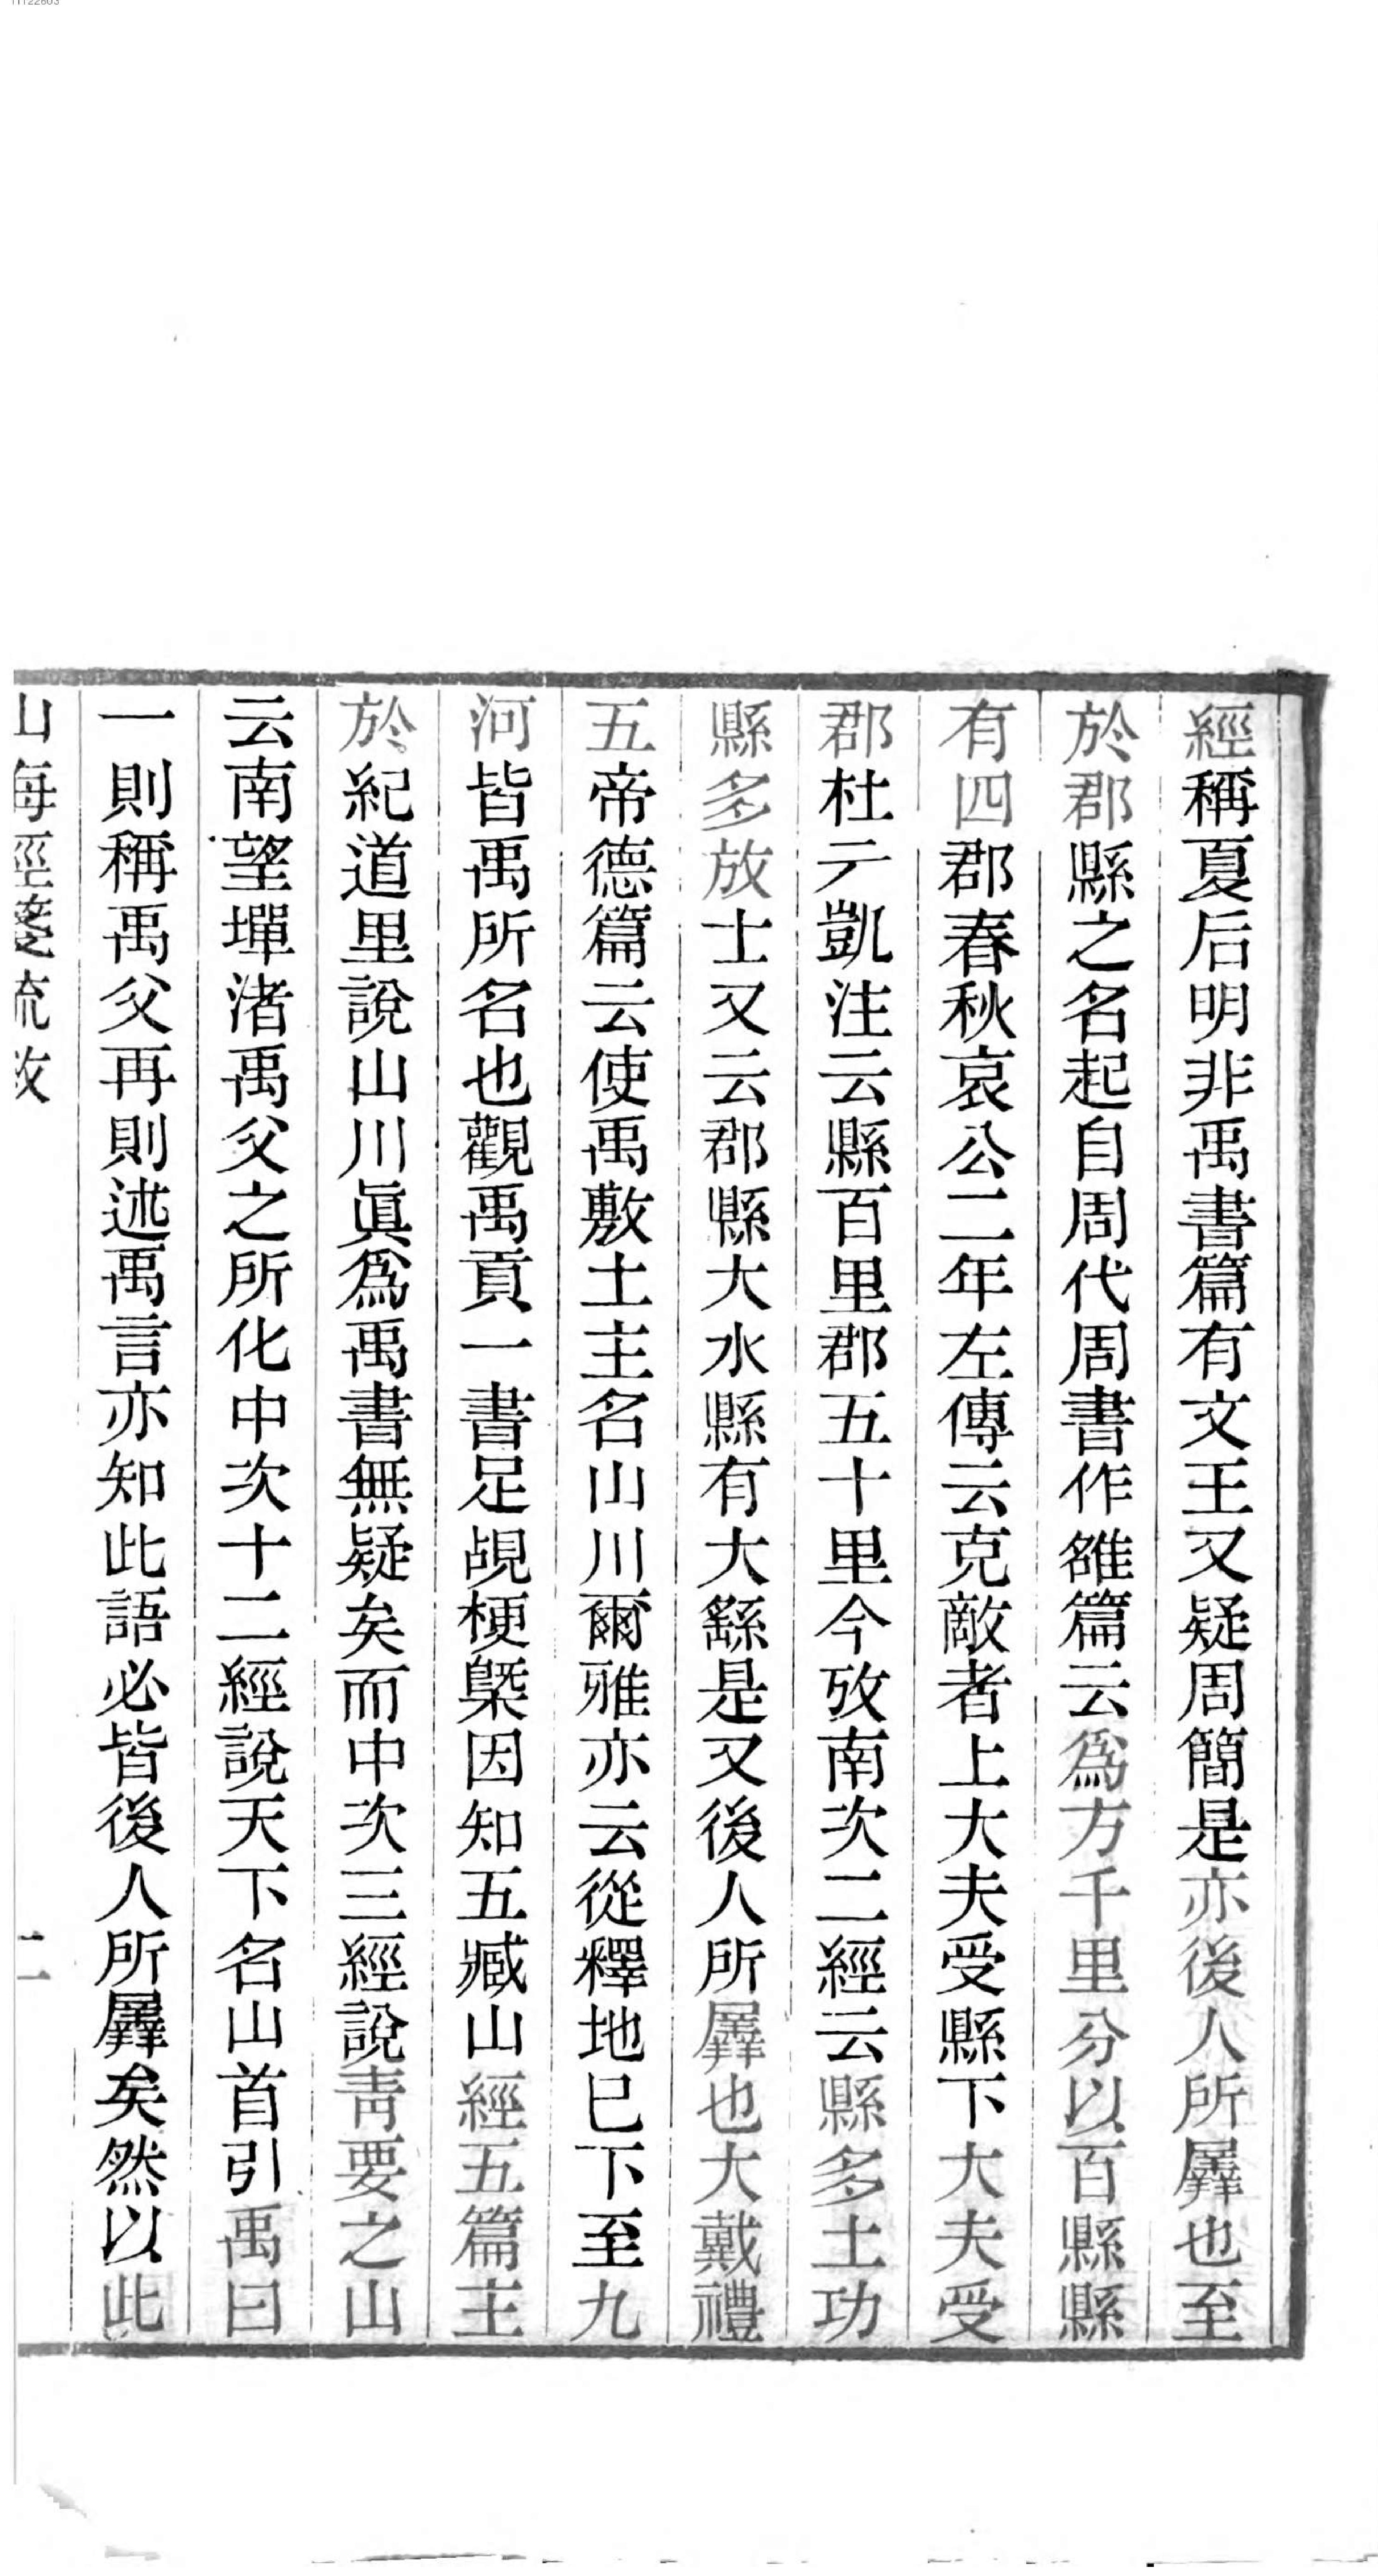 經稱夏后明非禹書篇有文王又疑周簡是亦後人所羼也至
於郡縣之名起自周代周書作雒篇云爲方千里分以百縣縣
有四郡春秋哀公二年左傳云克敵者上大夫受縣下大夫受
郡杜元凱注云縣百里郡五十里今攷南次二經云縣多土功
縣多放士又云郡縣大水縣有大繇是又後人所羼也大戴禮
五帝德篇云使禹敷土主名山川爾雅亦云從釋地巳下至九
河皆禹所名也觀禹貢一書足覘梗槩因知五臧山經五篇主
於紀道里說山川眞爲禹書無疑矣而中次三經說青要之山
云南望墠渚禹父之所化中次十二經說天下名山首引禹曰
一則稱禹父再則述禹言亦知此語必皆後人所羼矣然以此
山海經箋疏敘
二